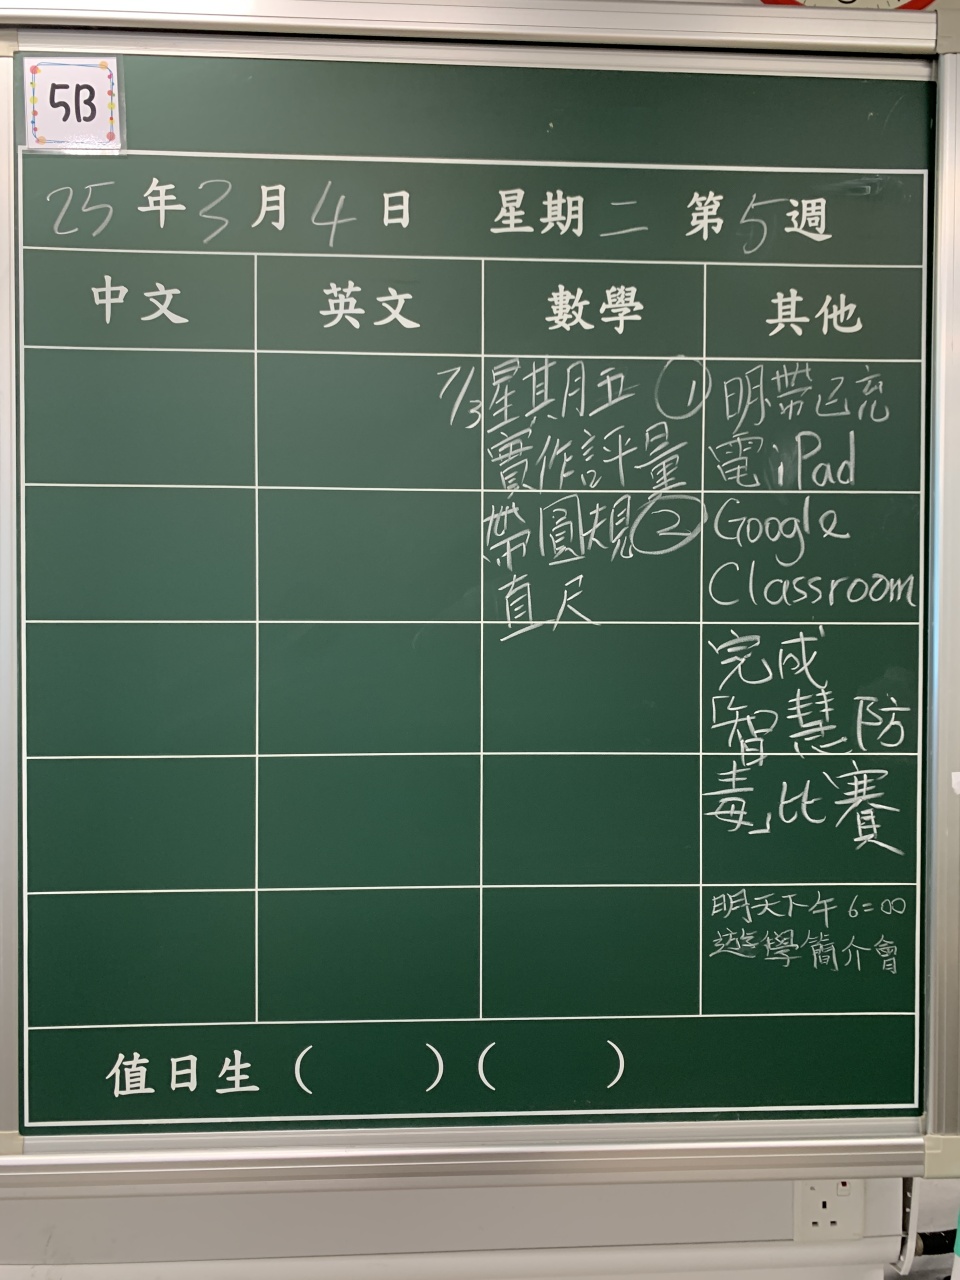 5B
25年3月4日 星期二 第5週
中文 英文 數學 其他
7/3 星其月五
實作評量
帶圓規
直尺
① 明帶已充
電iPad
② Google
Classroom
完成
「智慧防
毒」比賽
明天下午6:00
遊學簡介會
值日生( )( )